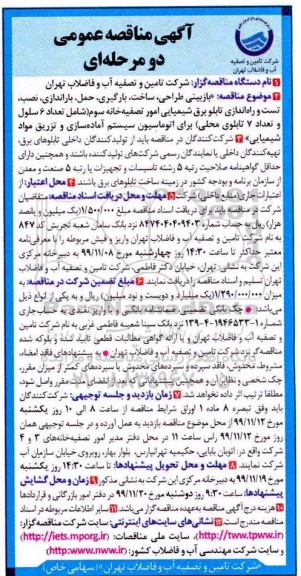 آگهی مناقصه عمومی
دو مرحله‌ای
شرکت تامین و تصفیه
آب و فاضلاب تهران
۱ نام دستگاه مناقصه‌گزار: شرکت تامین و تصفیه آب و فاضلاب تهران
۲ موضوع مناقصه: «بازبینی طراحی، ساخت، بارگیری، حمل، باراندازی، نصب،
تست و راه‌اندازی تابلو برق شیمیایی امور تصفیه‌خانه سوم (شامل تعداد ۶ سلول
و تعداد ۷ تابلوی محلی) برای اتوماسیون سیستم آماده‌سازی و تزریق مواد
شیمیایی» ۳ شرکت‌کنندگان در مناقصه باید از تولیدکنندگان داخلی تابلوهای برق،
تهیه‌کنندگان داخلی یا نمایندگان رسمی شرکت‌های تولیدکننده باشند و همچنین دارای
حداقل گواهینامه صلاحیت رتبه ۵ رشته تاسیسات و تجهیزات یا رتبه ۵ صنعت و معدن
از سازمان برنامه و بودجه کشور در زمینه ساخت تابلوهای برق باشند. ۴ محل اعتبار: از
اعتبارات جاری شرکت مهلت و محل دریافت اسناد مناقصه: متقاضیان
شرکت در مناقصه دریافت اسناد مناقصه مبلغ ۱/۵۰۰/۰۰۰ (یک میلیون و پانصد
هزار) ریال به حساب شماره نزد بانک شعبه کد ۸۴۷
به نام شرکت تامین و تصفیه آب و فاضلاب تهران واریز و فیش مربوطه را با معرفی‌نامه
معتبر حداکثر تا ساعت ۱۴:۳۰ روز چهارشنبه مورخ ۹۹/۱۱/۰۸ به دبیرخانه مرکزی
این شرکت به نشانی: تهران، خیابان دکتر فاطمی شرکت تامین و تصفیه آب و فاضلاب
تهران تسلیم و اسناد مناقصه را دریافت نمایند. ۶ مبلغ تضمین شرکت در مناقصه: به
میزان ریال و به یکی از انواع ذیل
می‌باشد: چک بانکی تضمینی ضمانتنامه بانکی
شماره نزد بانک سینا شعبه فاطمی غربی به نام شرکت تامین
و تصفیه آب و فاضلاب تهران و یا ارائه گواهی مطالبات قطعی تایید شده و بلوکه شده
مناقصه‌گر نزد شرکت تامین و تصفیه آب و فاضلاب تهران • به پیشنهادهای فاقد امضاء،
مشروط، مخدوش، فاقد سپرده و سپرده‌های مخدوش یا سپرده‌های کمتر از میزان مقرر،
چک شخصی و نظایر آن و همچنین پیشنهاداتی که بعد از انقضای مدت مقرر واصل شود،
مطلقا ترتیب اثر داده نخواهد شد. ۷ زمان بازدید و جلسه توجیهی: شرکت‌کنندگان
باید وفق تبصره ۸ ماده ۱ اوراق شرایط مناقصه از ساعت ۸ الی ۱۰ روز یکشنبه
مورخ ۹۹/۱۱/۱۲ از محل موضوع مناقصه بازدید به عمل آورده و در جلسه توجیهی همان
روز مورخ ۹۹/۱۱/۱۲ راس ساعت ۱۱ در محل دفتر مدیر امور تصفیه‌خانه‌های ۳ و ۴
شرکت واقع در: اتوبان بابایی، حکیمیه تهرانپارس، بلوار بهار، روبروی خیابان سازمان آب
شرکت نمایند. ۸ مهلت و محل تحویل پیشنهادها: تا ساعت ۱۴:۳۰ روز یکشنبه
مورخ ۹۹/۱۱/۱۹ به دبیرخانه مرکزی این شرکت به نشانی مذکور ۹ زمان و محل گشایش
پیشنهادها: ساعت ۹:۳۰ روز دوشنبه مورخ ۹۹/۱۱/۲۰ در دفتر امور بازرگانی و قراردادها
۱۰ هزینه درج آگهی مناقصه به‌عهده مناقصه‌گزار می‌باشد. ۱۱ سایر اطلاعات مربوطه در اسناد
مناقصه مندرج است. ۱۲ نشانی‌های سایت‌های اینترنتی: سایت شرکت مناقصه‌گزار:
(http://www.tpww.ir)، سایت ملی مناقصات: (http://iets.mporg.ir)
و سایت شرکت مهندسی آب و فاضلاب کشور: (http:www.nww.ir)
«شرکت تامین و تصفیه آب و فاضلاب تهران» (سهامی خاص)